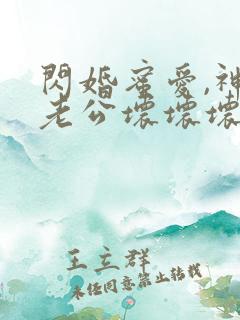 閃婚蜜愛,神
老公壞壞壞
王立群
未经同意禁止转载